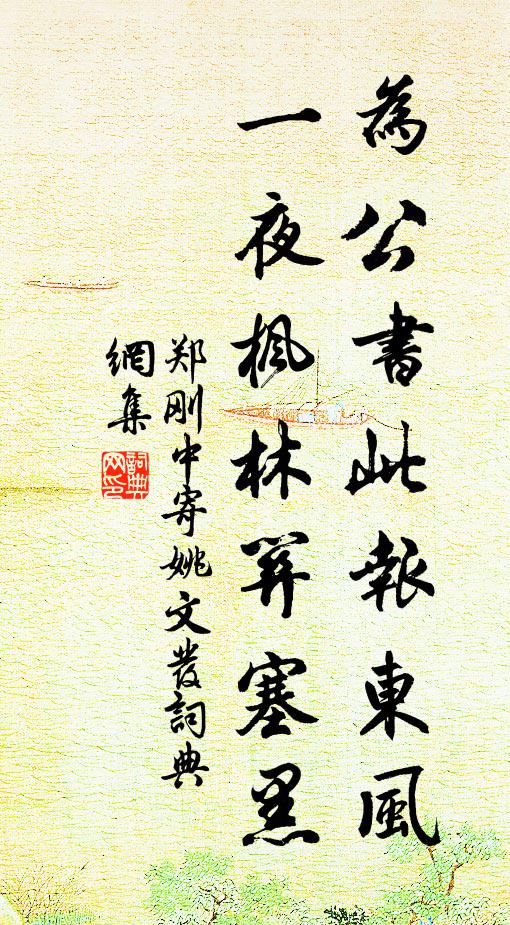 為公書此報東風
一夜楓林關塞黑
郑刚中寄姚文發詞典
網集
詞典网印